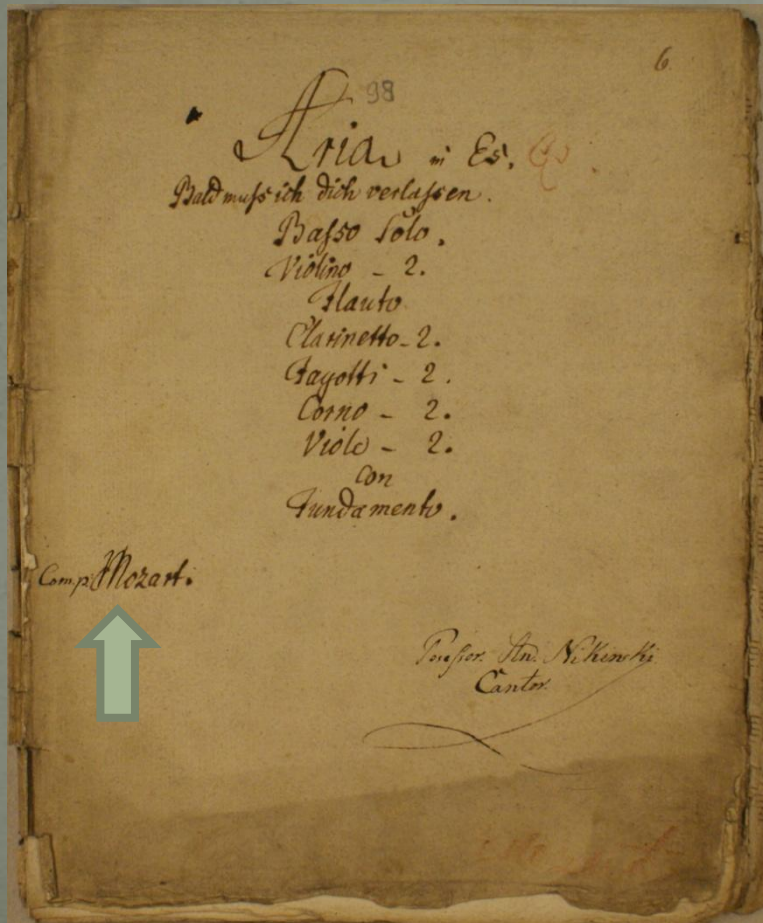 6.
98
Aria in Es.
Bald muss ich dich verlassen.
Basso Solo.
Violino - 2.
Flauto
Clarinetto - 2.
Fagotti - 2.
Corno - 2.
Viole - 2.
con
Fundamento.
Comp: Mozart.
Nikenski
Cantor.